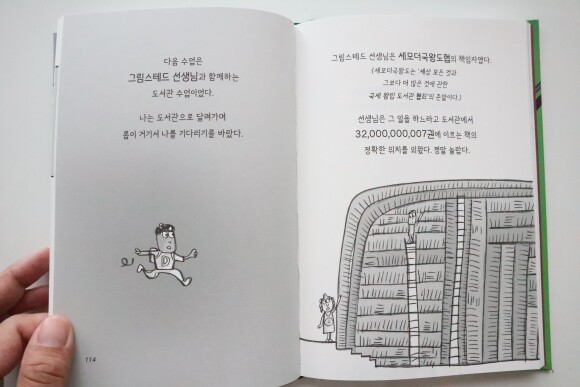 다음 수업은
그림스테드 선생님과 함께하는
도서관 수업이었다.
나는 도서관으로 달려가며
롭이 거기서 나를 기다리기를 바랐다.
D
114
그림스테드 선생님은 세모더국왕도협의 책임자였다.
(세모더국왕도는 '세상 모든 것과
그보다 더 많은 것에 관한
국제 왕립 도서관 협회'의 준말이다.)
선생님은 그 일을 하느라고 도서관에서
32,000,000,007권에 이르는 책의
정확한 위치를 외웠다. 정말 놀랍다.